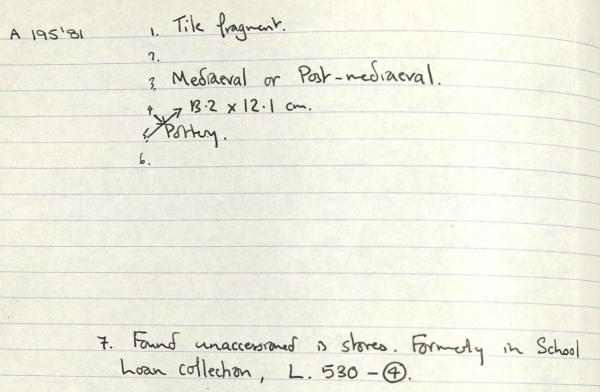 A 195'81 1. Tile fragment.
2.
3. Mediaeval or Post-mediaeval.
4. 13.2 x 12.1 cm.
5. Pottery.
6.
7. Found unaccessioned in stores. Formerly in School
Loan collection, L. 530 - ④.